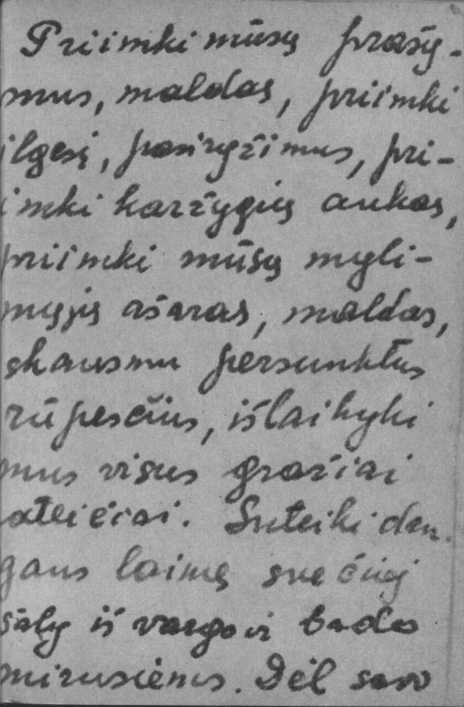 Priimki mūsų prašy-
mus, maldas, priimki
ilgesį, pasiryžimus, pri-
imki karžygių aukas,
priimki mūsų myli-
mųjų ašaras, maldas,
skausmu persunktus
rūpesčius, išlaikyki
mus visus gražiai
ateičiai. Suteiki dan-
gaus laimę svečioj
šaly iš vargo ir bado
mirusiems. Dėl savo